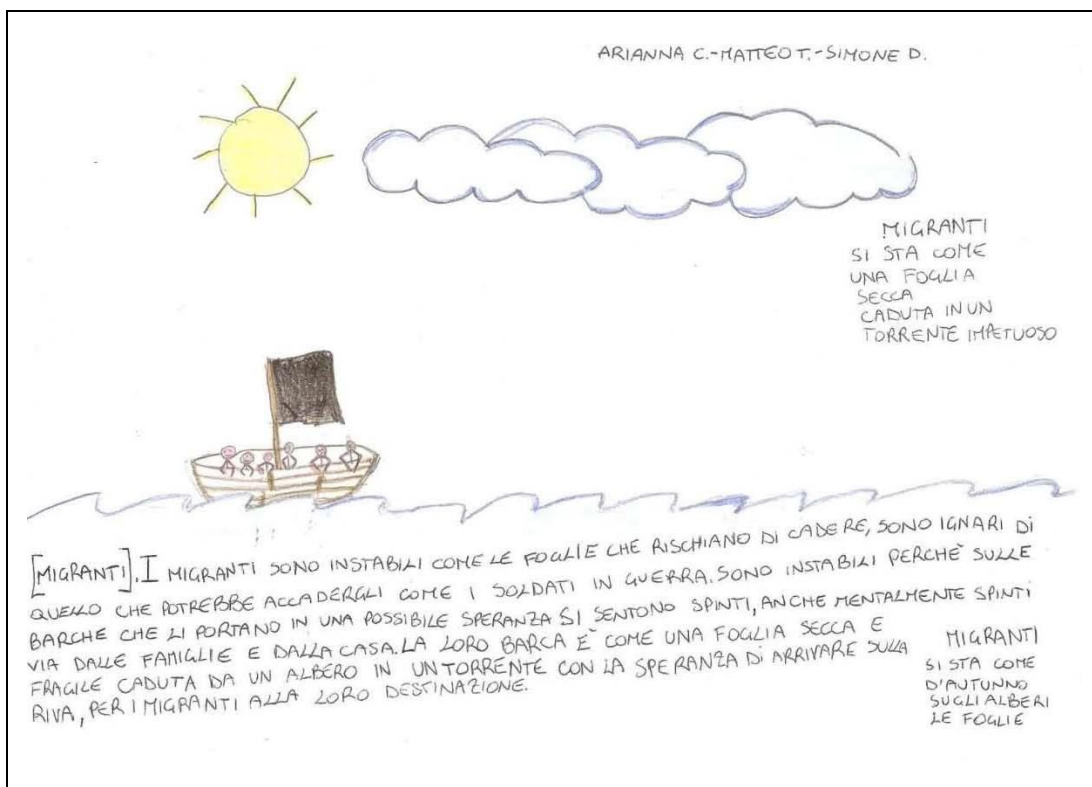 ARIANNA C.-MATTEO T.-SIMONE D.
MIGRANTI
SI STA COME
UNA FOGLIA
SECCA
CADUTA IN UN
TORRENTE IMPETUOSO
[MIGRANTI]. I MIGRANTI SONO INSTABILI COME LE FOGLIE CHE RISCHIANO DI CADERE, SONO IGNARI DI
QUELLO CHE POTREBBE ACCADERGLI COME I SOLDATI IN GUERRA. SONO INSTABILI PERCHÈ SULLE
BARCHE CHE LI PORTANO IN UNA POSSIBILE SPERANZA SI SENTONO SPINTI, ANCHE MENTALMENTE SPINTI
VIA DALLE FAMIGLIE E DALLA CASA. LA LORO BARCA È COME UNA FOGLIA SECCA E
FRAGILE CADUTA DA UN ALBERO IN UN TORRENTE CON LA SPERANZA DI ARRIVARE SULLA
RIVA, PER I MIGRANTI ALLA LORO DESTINAZIONE.
MIGRANTI
SI STA COME
D'AUTUNNO
SUGLI ALBERI
LE FOGLIE